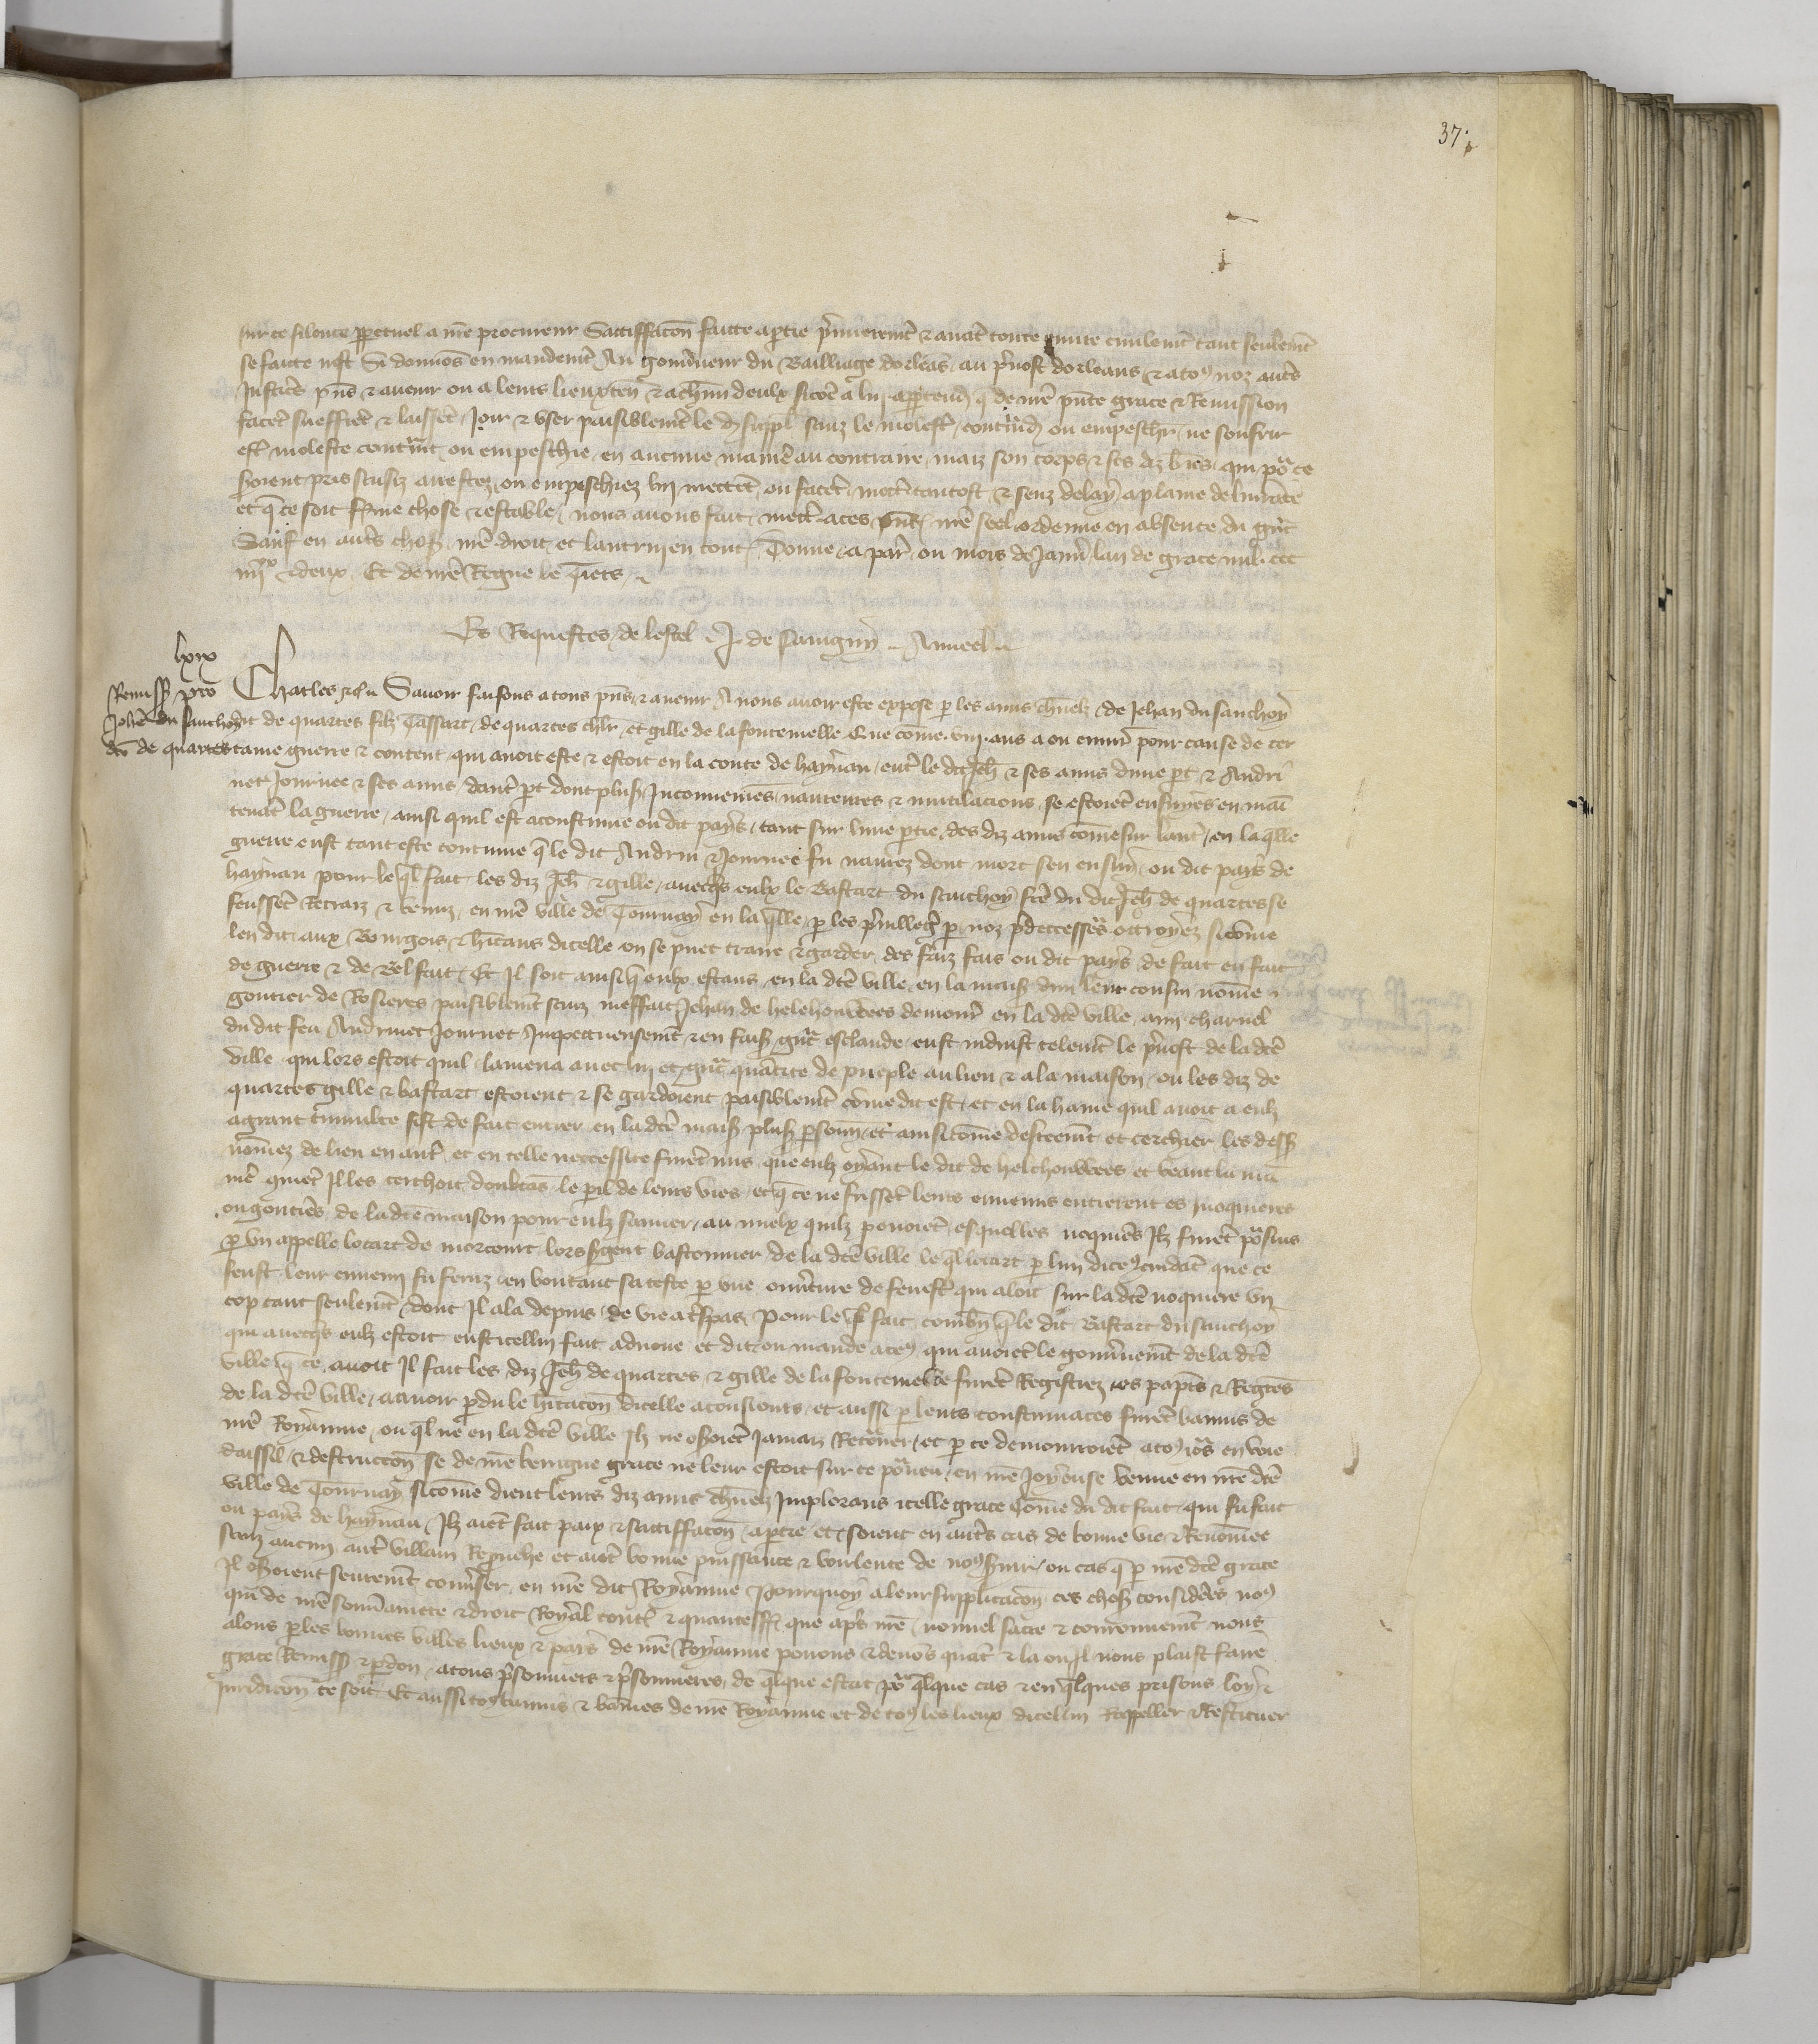 37
sur ce silence ppetuel a nre procureur Satisffacon faicte aptie pmierement & avat toute euvre civilement tant seulemt
se faicte nest Si donnos en mandemt Au gouvneur du Bailliage dorleas au pvost dorleans & a to9 noz autes
Justices pns & avenir ou a leurs lieuxten & achun deulx sicoe a lui appteud q de nre pnte grace & Remission
facet sueffret & laisset Joir & user paisiblemt le d suppl sanz le molest contrand ou empeschr ne soufrir
est moleste contrait ou empeschie en aucune maniè au contraire maiz son corps & ses diz biēs qui po ce
soient pris saisiz arrestez ou empeschiez lui mettēt ou facēt mett tantost & senz delay a plaine delivrāce
et q ce soit ferme chose & estable nous avons fait mett a ces pntes nre seel ordenne en absence du grāt
Sauf en autēs choses nre droit et lautruy en toutes Donne a par ou mois de Janv lan de grace mil ccc
iiiixx & deux Et de nre Regne le tiers
Es Requestes de lostel J. de Savigny Anceel
lxix
Remiss pro
Johe du sauchoy
dco de quartes
Charles &c Savoir faisons a tous pns & avenir A nous avoir este expose p les amis charnelz de Jehan du sauchoy
dit de quartes filz Tassart de quartes chlr et gille de la fontenielle Que come viii ans a ou environ pour cause de cer
taine guerre & content qui avoit este & estoit en la conte de haynau entr le dit Jeh & ses amis dune pt & Andri
net Journee & ses amis dautr pt dont plus Inconveniens navreures & mutilacions se estoiēt ensuyes en main
tenāt la guerre ainsi quil est acoustume ou dit pays tant sur lune ptie des diz amis come sur lautr en laqlle
guerre eust tant este continue q le dit Andriu Journee fu navrez dont mort sen ensuy ou dit pays de
haynau pour leql fait les diz Jeh & gille avecqs eulx le Bastart du sauchoy frē du dit Jeh de quartes se
feussēt Retraiz & venuz en nre ville de Tournay en la qlle p les privilleges p noz pdecesseurs ottroyez sicome
len dit aux Bourgois & hitans dicelle on se puet traire & garder des faiz fais ou dit pays de fait en fait
de guerre & de Bel fait Et Il soit ainsi q eulx estans en la dce ville en la maison dun leur cousin nomme
goutier de Rosieres paisiblemt sanz meffait Jehan de helchouwees demour en la dce ville ami charnel
du dit feu Andrinet Journet Impetueusemt & en faisant grāt esclande eust induist telemt le pvost de la dce
ville qui lors estoit quil lamena avec lui et grāt quātite de pueple au lieu & a la maison ou les diz de
quartes gille & bastart estoient & se gardoient paisiblemt come dit est et en la haine quil avoit a eulx
a grant tumulte fist de fait entrer en la dce maison plus psonnes et ainsi come desceemt et cerchier les dess
nommez de lieu en autr et en telle neccessite furēt mis que eulx oyant le dit de helchouwees et veant la ma
nie quiet Il les cerchoit doubtās le pil de leurs vies et q ce ne fussēt leurs ennemis entrerent es noquieres
ou goutiēs de la dce maison pour eulx sauver au mielx quilz povoiēt esquelles noquiēs Ilz furēt poursuis
p un appelle locart de morcourt lors sgent bastonnier de la dce ville le ql locart p lun diceulx cuidāt que ce
feust leur ennemi fu feruz en boutant sa teste p une ouvture de fenestr qui aloit sur la dce noquiere un
cop tant seulemt dont Il ala depuis de vie a trespas Pour le ql fait combn q le dit Bastart du sauchoy
qui avecqs eulx estoit eust icellui fait advoue et dit ou mande a ceulx qui avoiēt le gouvnemt de la dce
ville q ce avoit Il fait les diz Jeh de quartes & gille de la fontenielle furēt Registrez es papiers & Regres
de la dce ville a avoir pdu le hitacon dicelle a tousiours et aussi p leurs contumaces furēt bannis de
nre Royaume ou ql ne en la dce ville Ilz ne oseroiēt Jamaiz Retourner et p ce demourroiēt a to9 jours en voie
dassil & destruccion se de nre benigne grace ne leur estoit sur ce pourveu en nre Joyeuse venue en nre dce
ville de Tournay sicome dient leurs diz amis charnelz Implorans icelle grace Come du dit fait qui fu fait
ou pays de haynau Ilz aiēt fait paix & satisffacon a ptie et soient en autrs cas de bonne vie & Renommee
sanz aucun autr villain Reprouche et aiēt bonne puissance & voulente de nous servir ou cas q p nre dce grace
Il oseroient seuremt converser en nre dit Royaume Pourquoy a leur supplicacion ces choses considerees no9
qui de nre souvainete & droit Royal toutes & quantesfois que aps nre nouvel sacre & couronnemt nous
alons p les bonnes villes lieux & pays de nre Royaume povons & devons quāt & la ou Il nous plaist faire
grace Remiss & pdon a tous prisonniers & prisonnieres de qlque estat po qlque cas & en qlques prisons loy &
Juridicon ce soit Et aussi tous bannis & bānies de nre Royaume et de to9 les lieux dicellui Rappeller & Restituer